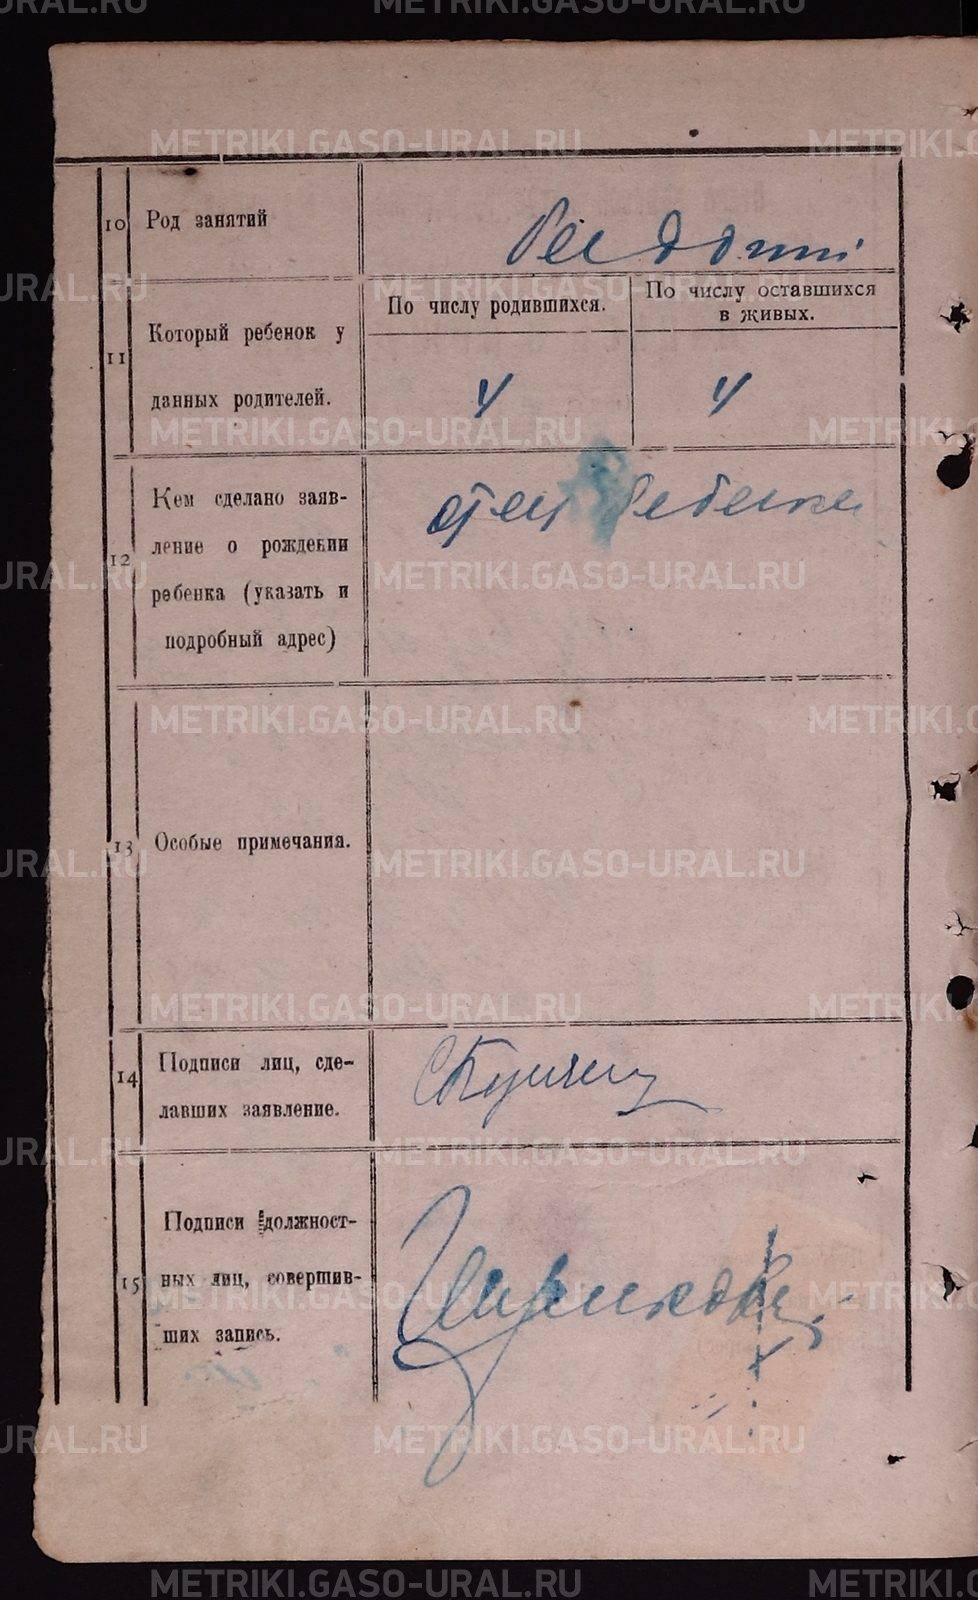 METRIKI.GASO-URAL.RU
10 Род занятий
11 Который ребенок у
данных родителей.
По числу родившихся.
По числу оставшихся
в живых.
4 4
12 Кем сделано заяв-
ление о рождении
ребенка (указать и
подробный адрес)
отец ребенка
13 Особые примечания.
14 Подписи лиц, сде-
лавших заявление.
15 Подписи должност-
ных лиц, совершив-
ших запись.